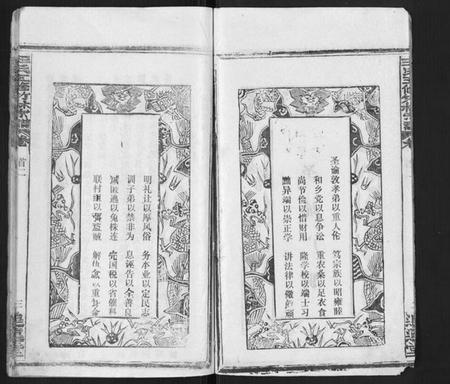 圣谕敦孝弟以重人伦 笃宗族以昭雍睦
和乡党以息争讼 重农桑以足衣食
尚节俭以惜财用 隆学校以端士习
黜异端以崇正学 讲法律以儆愚顽
明礼让以厚风俗 务本业以定民志
训子弟以禁非为 息诬告以全善良
诫匿逃以免株连 完国税以省催科
联村以弭盗贼 解仇忿以重身命